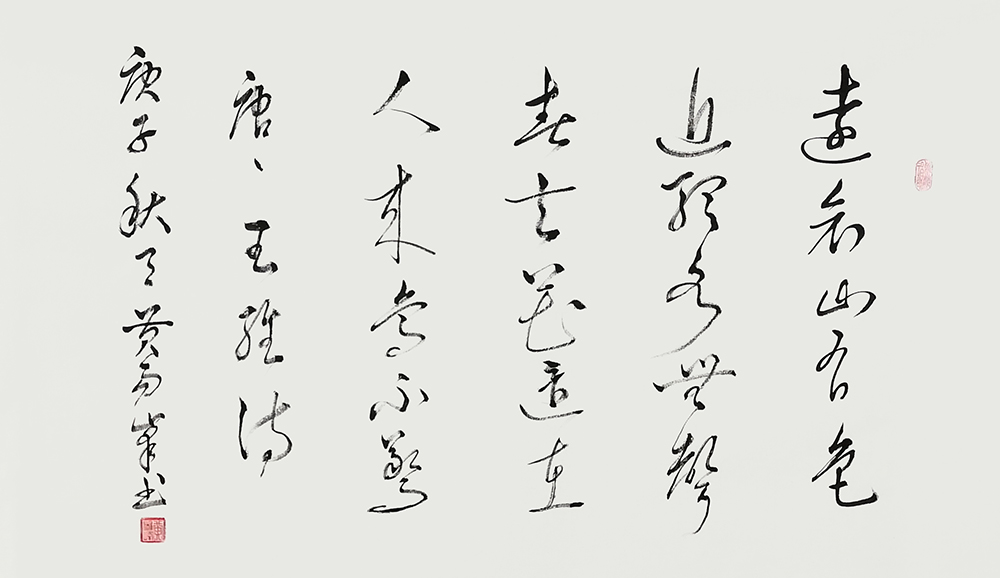 遠看山有色
近聽水無聲
春去花還在
人來鳥不驚
唐、王維詩
庚子秋 黃 峯書